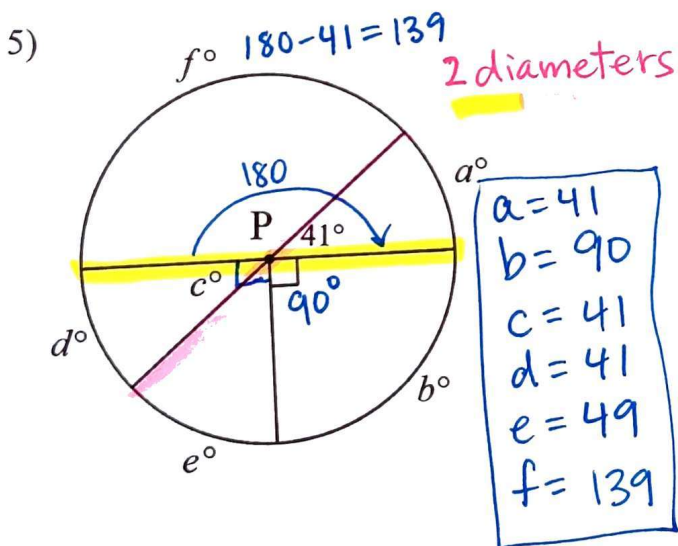 5)
f° 180-41=139
2 diameters
a°
180
P 41°
c° 90°
d°
b°
e°
a=41
b=90
c=41
d=41
e=49
f=139